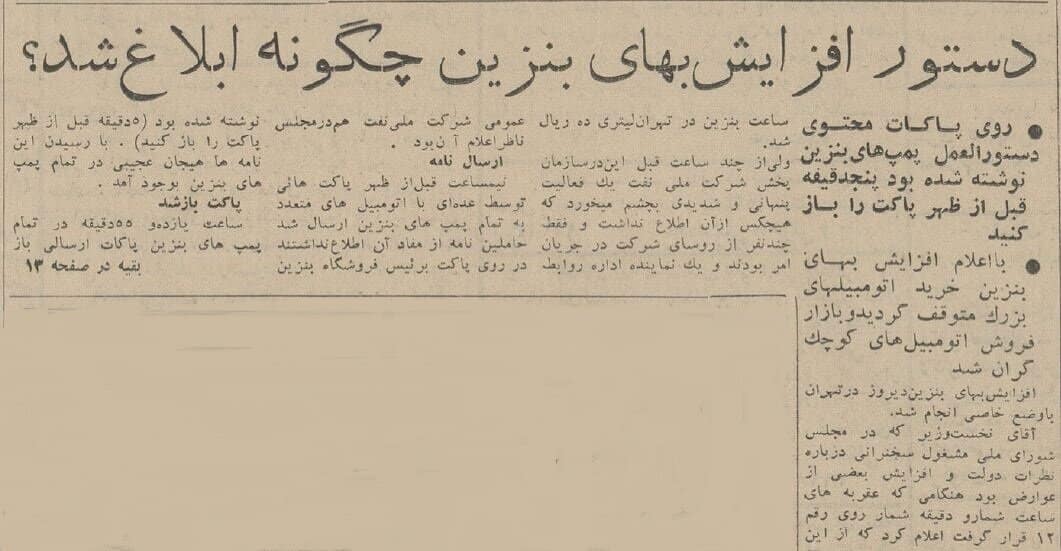 دستور افزایش‌بهای بنزین چگونه ابلاغ شد؟
● روی پاکات محتوی
دستورالعمل پمپ‌های بنزین
نوشته شده بود پنجدقیقه
قبل از ظهر پاکت را باز
کنید
● بااعلام افزایش بهای
بنزین خرید اتومبیلهای
بزرك متوقف گردیدوبازار
فروش اتومبیل‌های کوچك
گران شد
افزایش‌بهای بنزین‌دیروز درتهران
باوضع خاصی انجام شد.
آقای نخست‌وزیر که در مجلس
شورای ملی مشغول سخنرانی درباره
نظرات دولت و افزایش بعضی از
عوارض بود هنگامی که عقربه های
ساعت شمارو دقیقه شمار روی رقم
۱۲ قرار گرفت اعلام کرد که از این
ساعت بنزین در تهران‌لیتری ده ریال
شد.
ولی‌از چند ساعت قبل این‌درسازمان
پخش شرکت ملی نفت یك فعالیت
پنهانی و شدیدی بچشم میخورد که
هیچکس ازآن اطلاع نداشت و فقط
چندنفر از روسای شرکت در جریان
امر بودند و یك نماینده اداره روابط
عمومی شرکت ملی‌نفت هم‌درمجلس
ناظراعلام آن‌بود .
ارسال نامه
نیمساعت قبل‌از ظهر پاکت هائی
توسط عده‌ای با اتومبیل های متعدد
به تمام پمپ های بنزین ارسال شد
حاملین نامه از مفاد آن اطلاع‌نداشتند
در روی پاکت برئیس فروشگاه بنزین
نوشته شده بود (۵دقیقه قبل از ظهر
پاکت را باز کنید) . با رسیدن این
نامه ها هیجان عجیبی در تمام پمپ
های بنزین بوجود آمد .
پاکت بازشد
ساعت یازده‌و ۵۵دقیقه در تمام
پمپ های بنزین پاکات ارسالی باز
بقیه در صفحه ۱۳